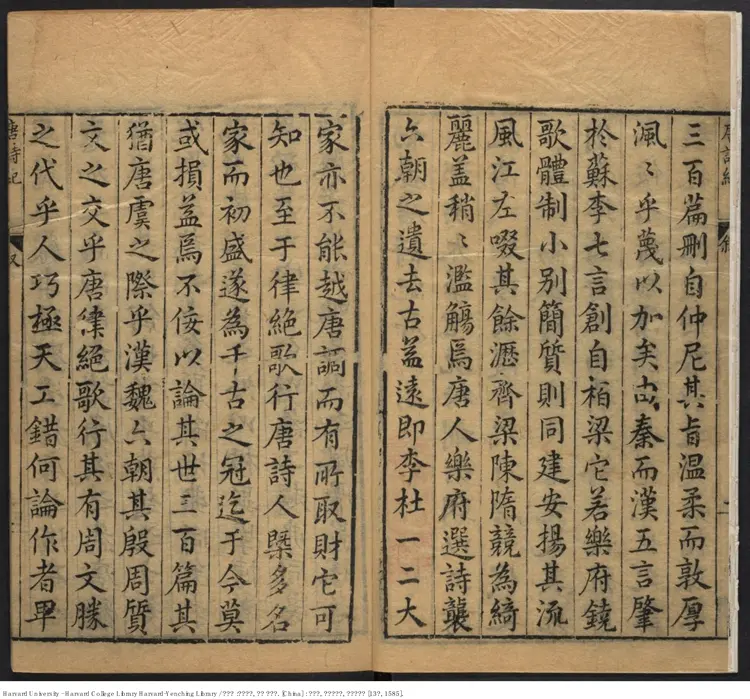 三百篇刪自仲尼其旨温柔而敦厚
渢〻乎蔑以加矣由秦而漢五言肇
於蘇李七言創自栢梁它若樂府鐃
歌體制小別簡質則同建安揚其流
風江左啜其餘瀝齊梁陳隋競為綺
麗盖稍〻濫觴焉唐人樂府選詩襲
六朝之遺去古益遠即李杜一二大
家亦不能越唐調而有所取財它可
知也至于律絕歌行唐詩人槩多名
家而初盛遂為千古之冠迄于今莫
或損益焉不佞以論其世三百篇其
猶唐虞之際乎漢魏六朝其殷周質
文之交乎唐律絕歌行其有周文勝
之代乎人巧極天工錯何論作者畢
唐詩紀
Harvard University - Harvard College Library Harvard-Yenching Library / ??? :????, ?? ???. [China] : ???, ?????, ????? [13?, 1585].